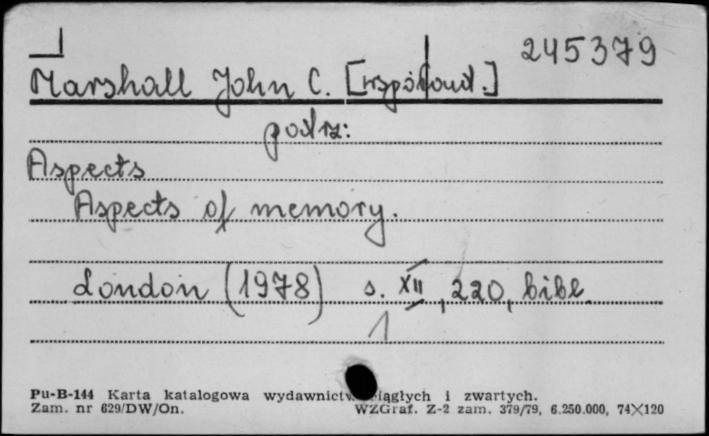 245379
Marshall John C. [współaut.]
patrz:
Aspects
Aspects of memory.
London (1978) s. XII, 220, bibl.
1
Pu-B-144 Karta katalogowa wydawnictw ciągłych i zwartych.
Zam. nr 629/DW/On. WZGraf. Z-2 zam. 379/79, 6.250.000, 74X120